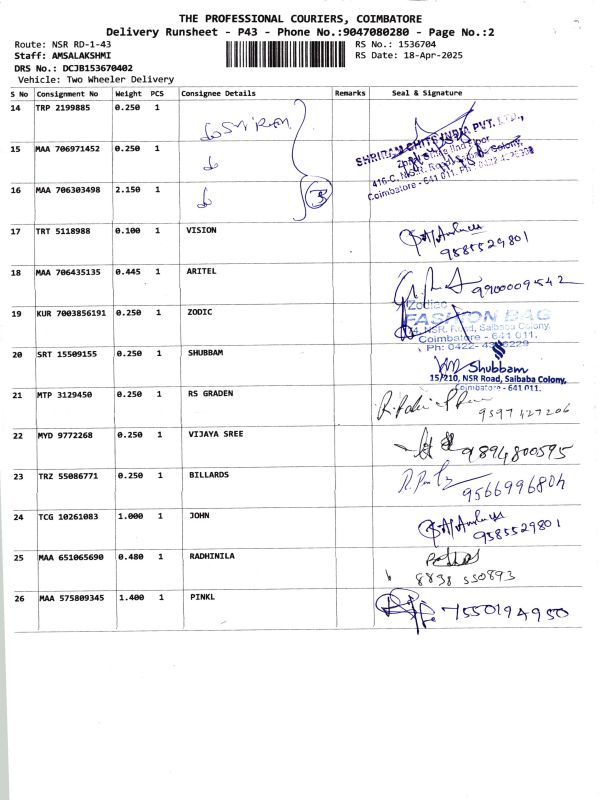 THE PROFESSIONAL COURIERS, COIMBATORE
Delivery Runsheet - P43 - Phone No.:9047080280 - Page No.:2
Route: NSR RD-1-43 RS No.: 1536704
Staff: AMSALAKSHMI RS Date: 18-Apr-2025
DRS No.: DCJB153670402
Vehicle: Two Wheeler Delivery
S No Consignment No Weight PCS Consignee Details Remarks Seal & Signature
14 TRP 2199885 0.250 1
SHRIRAM CHITS INDIA PVT. LTD.,
15 MAA 706971452 0.250 1
416-C, N.S.R. Road, Saibaba Colony,
Coimbatore - 641 011.
16 MAA 706303498 2.150 1 3
17 TRT 5118988 0.100 1 VISION
9585529801
18 MAA 706435135 0.445 1 ARITEL
9900009542
19 KUR 7003856191 0.250 1 ZODIC
Zodiac
FASHION BAG
NSR. Road, Saibaba Colony,
Coimbatore - 641 011.
20 SRT 15509155 0.250 1 SHUBBAM
Shubbam
15/210, NSR Road, Saibaba Colony,
Coimbatore - 641 011.
21 MTP 3129450 0.250 1 RS GRADEN
9597427206
22 MYD 9772268 0.250 1 VIJAYA SREE
9894800595
23 TRZ 55086771 0.250 1 BILLARDS
9566996804
24 TCG 10261083 1.000 1 JOHN
9585529801
25 MAA 651065690 0.480 1 RADHINILA
8838 550893
26 MAA 575809345 1.400 1 PINKL
7550194950